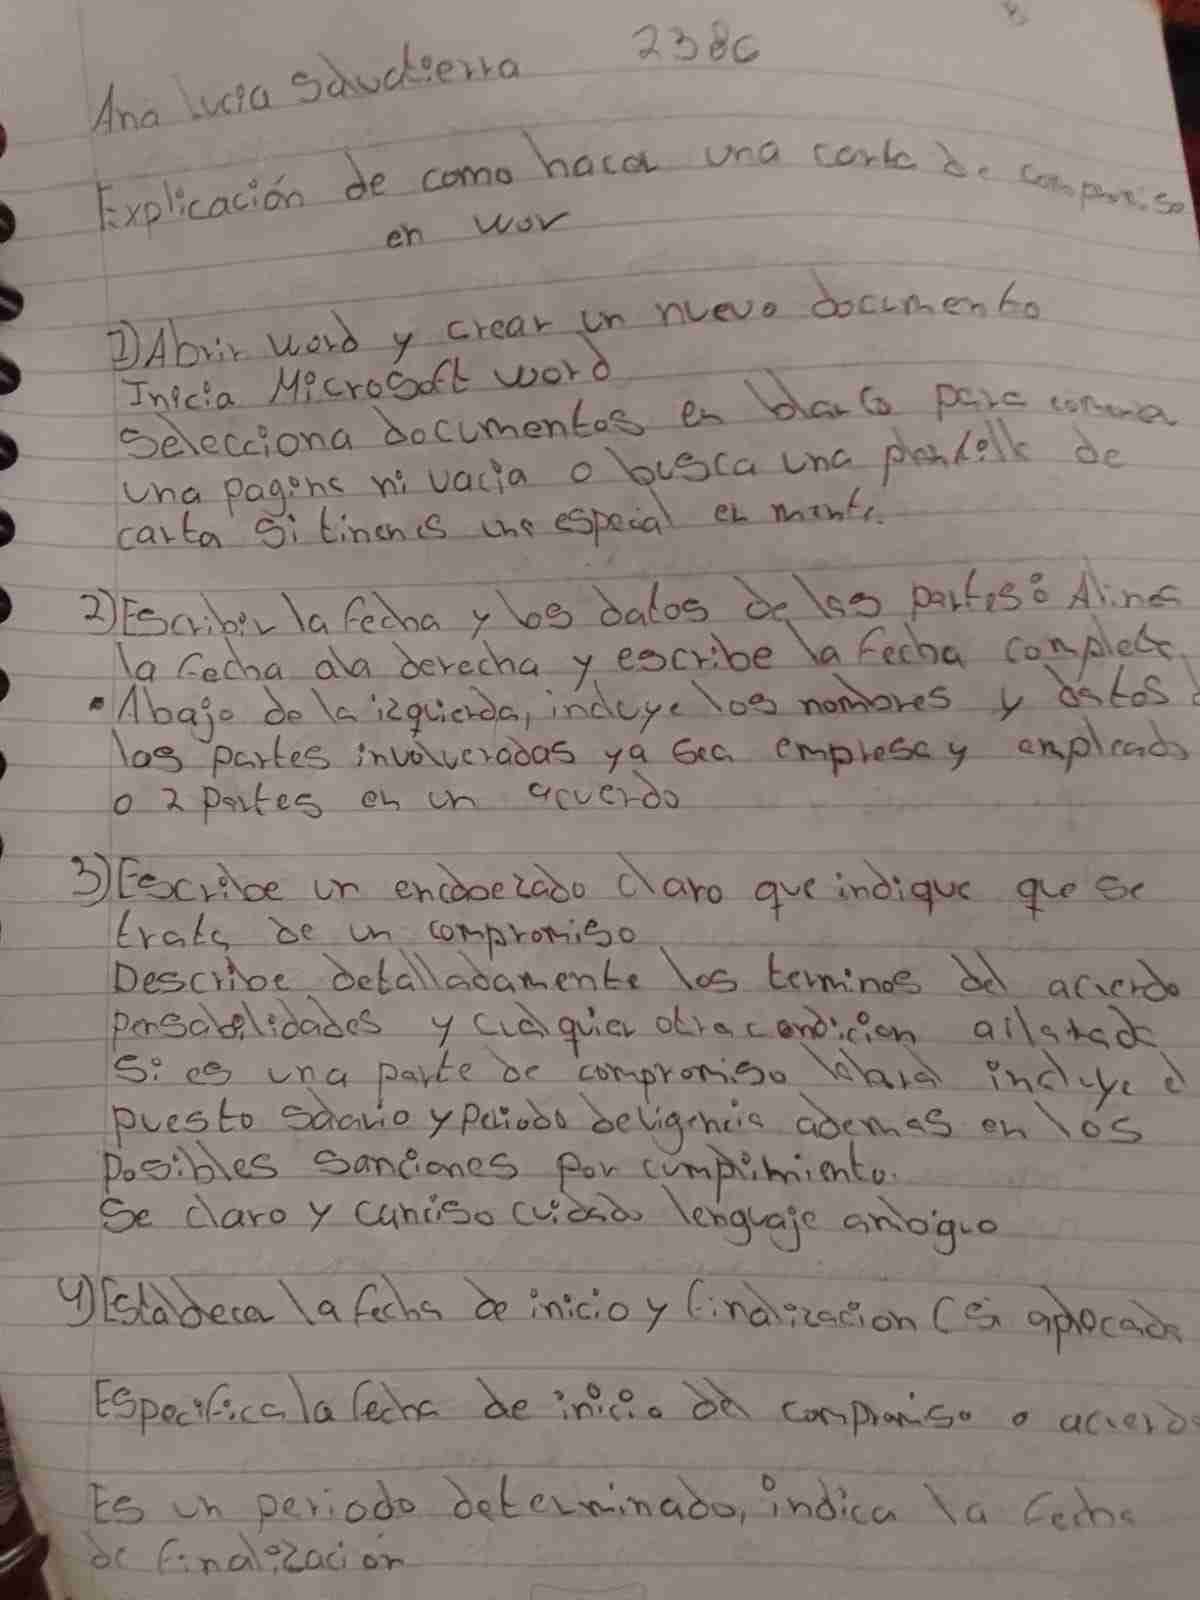 Ana Lucia Saudierra 2386
Explicación de como hacer una carta de compromiso
en wor
1) Abrir word y crear un nuevo documento
Inicia Microsoft word
Selecciona documentos en blanco para
una pagina ni vacia o busca una plantilla de
carta si tinenes una especial en mente.
2) Escribir la fecha y los datos de las partes: Alinea
la fecha ala derecha y escribe la fecha completa
• Abajo de la izquierda, incluye los nombres y datos
las partes involucradas ya sea empresa y empleado
o 2 partes en un acuerdo
3) Escribe un encabezado claro que indique que se
trata de un compromiso
Describe detalladamente los terminos del acuerdo
pensabilidades y cualquier otra condicion
Si es una parte de compromiso laboral incluye el
puesto salario y periodo deligencia ademas en los
posibles sanciones por cumplimiento.
Se claro y canciso cuidado lenguaje ambiguo
4) Establecer la fecha de inicio y finalizacion (si
Especifica la fecha de inicio del compromiso o acuerdo
Es un periodo determinado, indica la fecha
de finalizacion